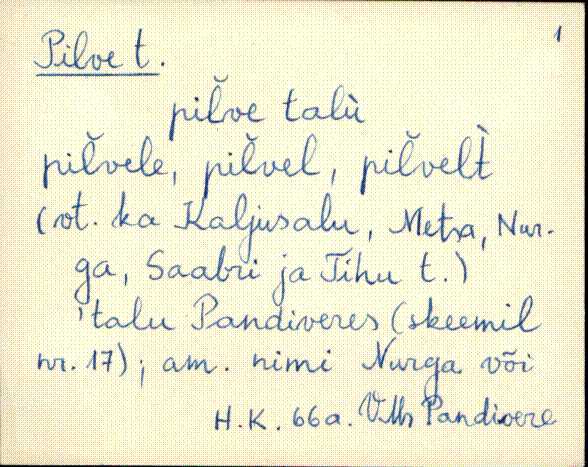 1
Pilve t.
pil̆ve talù
pil̆vele, pil̆vel, pil̆velt̀
(vt. ka Kaljusalu, Metsa, Nur-
ga, Saabri ja Tihu t.)
'talu Pandiveres (skeemil
nr. 17); am. nimi Nurga või
H.K. 66a. VMr Pandivere